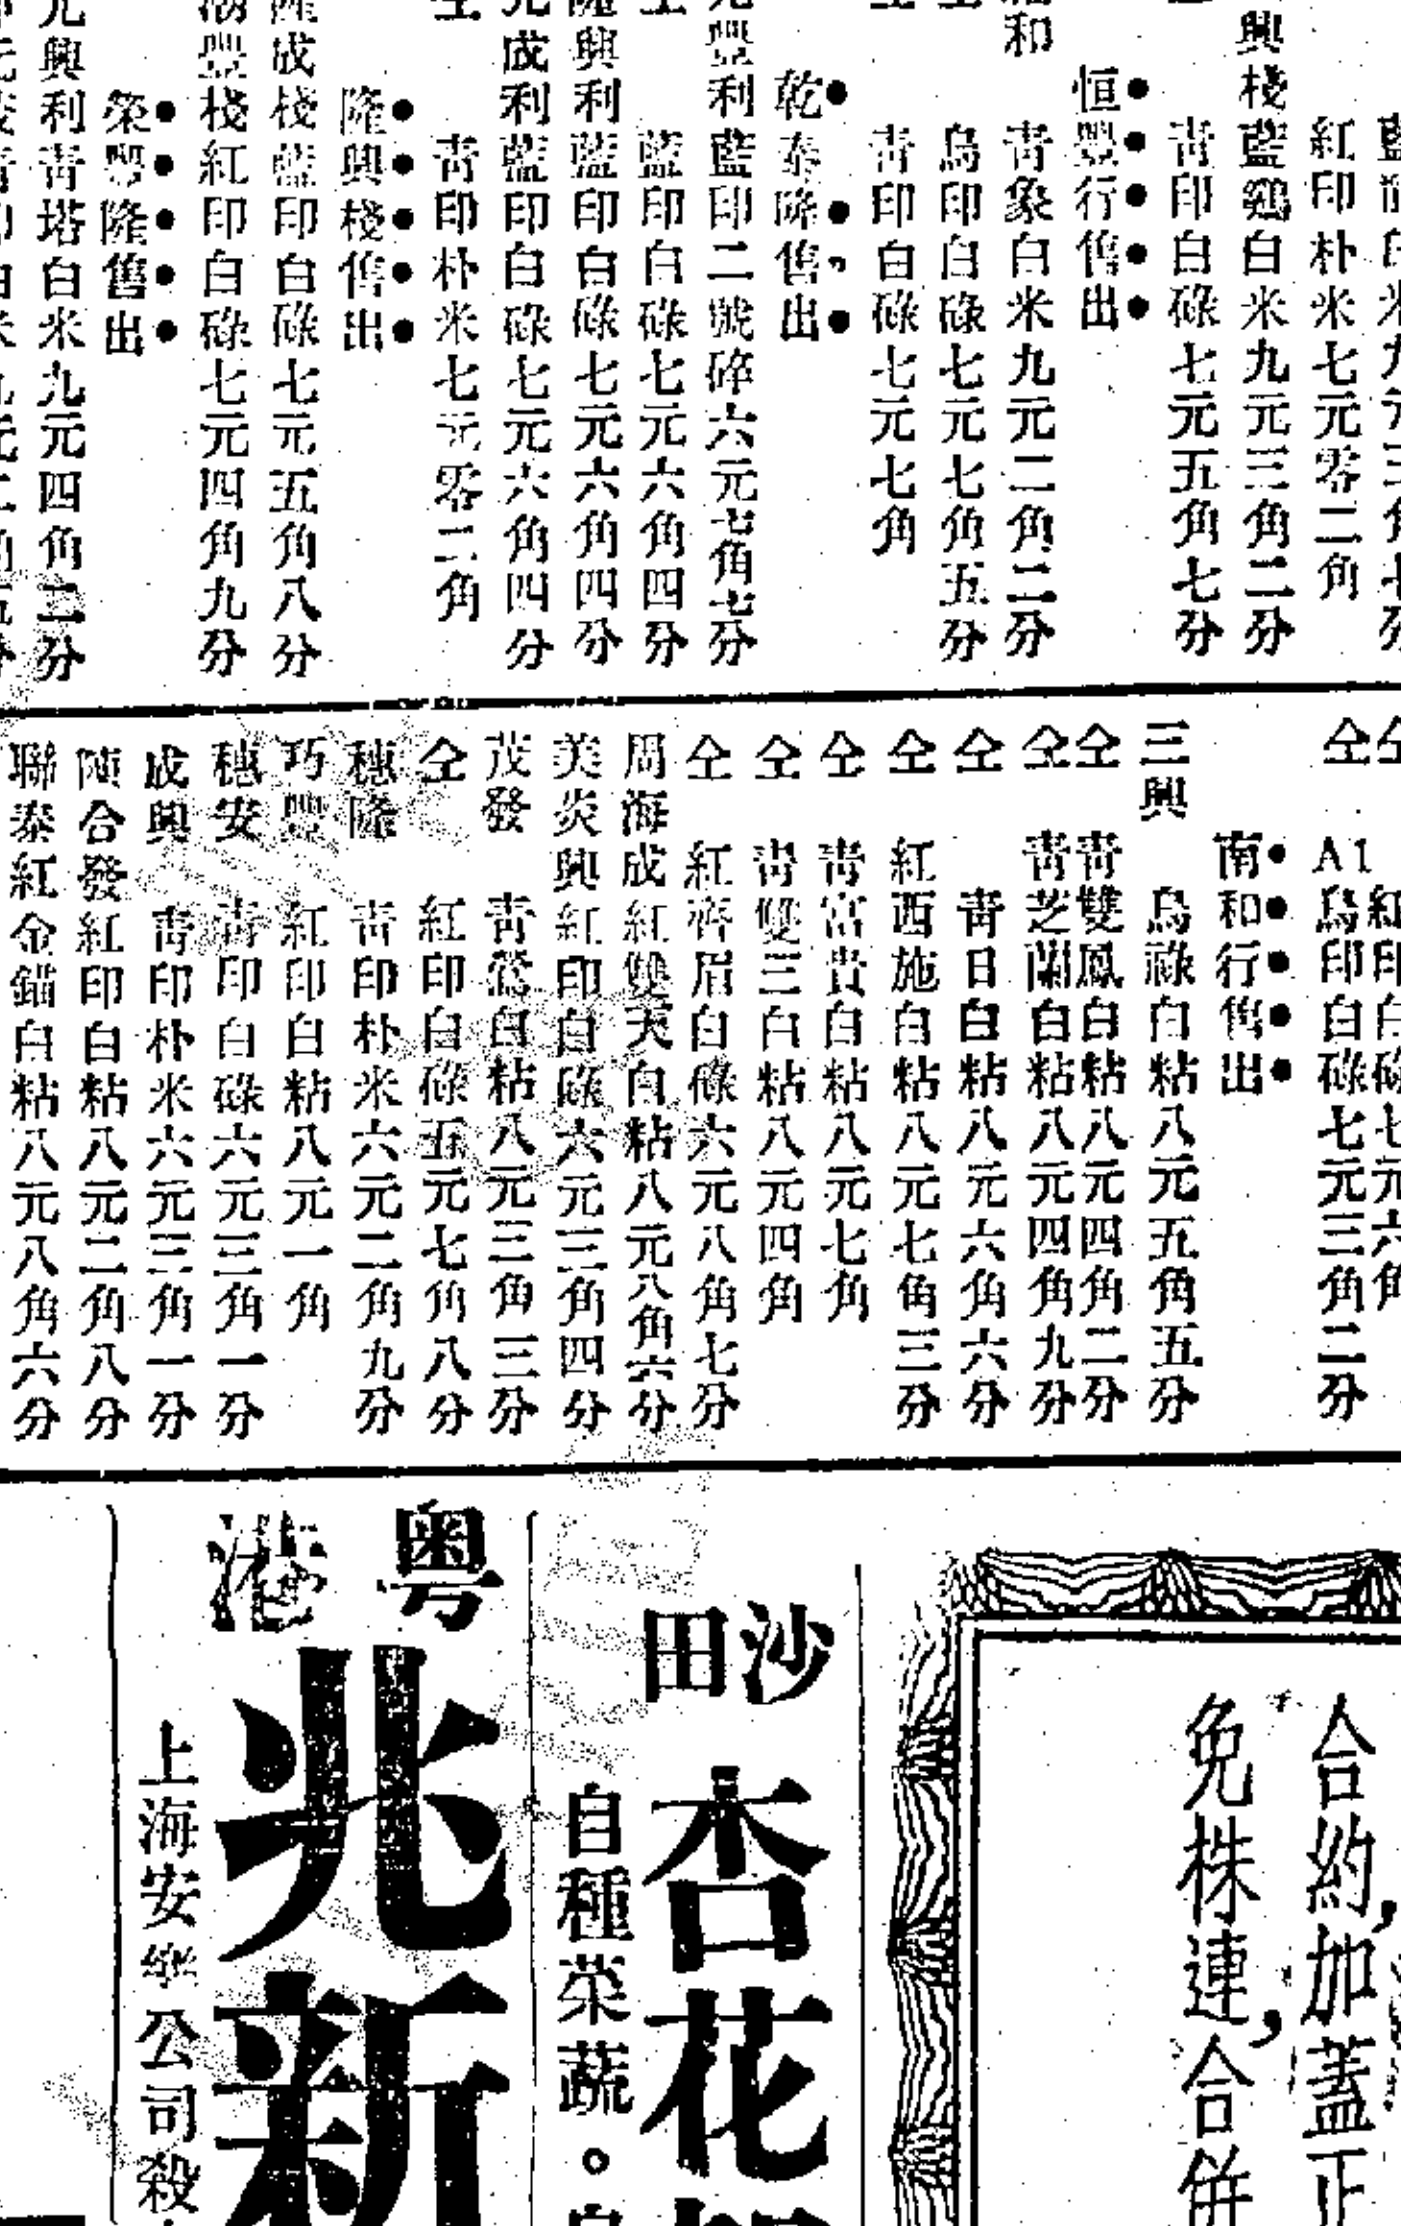 紅印朴米七元零二角
興棧藍鷄白米九元三角二分
青印白碌七元五角七分
恒豐行售出
和 青象白米九元二角二分
烏印白碌七元七角五分
青印白碌七元七角
乾泰隆售出
豐利藍印二號碎六元七角七分
藍印白碌七元六角四分
隆興利藍印白碌七元六角四分
元成利藍印白碌七元六角四分
仝 青印朴米七元零二角
隆興棧售出
隆成棧藍印白碌七元五角八分
豐棧紅印白碌七元四角九分
榮豐隆售出
元興利青塔白米九元四角二分
仝 紅印白碌七元六角
仝 A1烏印白碌七元三角二分
南和行售出
三興 烏祿白粘八元五角五分
仝 青雙鳳白粘八元四角二分
仝 青芝蘭白粘八元四角九分
仝 青日白粘八元六角六分
仝 紅西施白粘八元七角三分
仝 青富貴白粘八元七角
仝 青雙三白粘八元四角
仝 紅齊眉白碌六元八角七分
周海成紅雙天白粘八元八角六分
美炎興紅印白碌六元三角四分
茂發 青鶯白粘八元三角三分
仝 紅印白碌五元七角八分
穗隆 青印朴米六元二角九分
巧豐 紅印白粘八元一角
穗安 青印白碌六元三角一分
成興 青印朴米六元三角一分
陳合發紅印白粘八元二角八分
聯泰紅金錨白粘八元八角六分
合約,加蓋正
免株連,合併
沙田
杏花
自種菜蔬。自
粤港
兆新
上海安樂公司殺